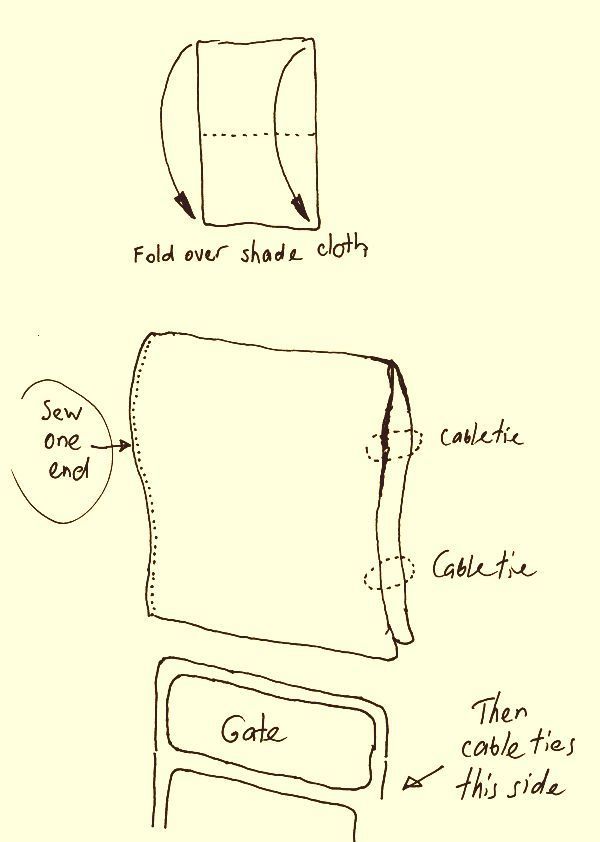 Fold over shade cloth
Sew
one
end
cable tie
Cable tie
Gate
Then
cable ties
this side